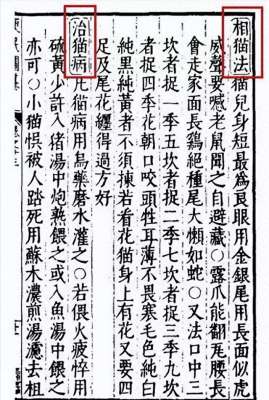 相猫法猫兒身短最為良眼用金銀尾用長面似虎
威聲要喊老鼠聞之自避藏○露爪能翻瓦腰長
會走家面長鷄絕種尾大懶如蛇○又法口中三
坎者捉一季五坎者捉二季七坎者捉三季九坎
者捉四季花朝口咬頭牲耳薄不畏寒毛色純白
純黑純黃者不須揀若看花猫身上有花又要四
足及尾花纏得過方好
治猫病凡猫病用烏藥磨水灌之○若偎火疲悴用
硫黃少許入猪湯中炮熟餵之或入魚湯中餵之
亦可○小猫悮被人踏死用蘇木濃煎湯濾去柤